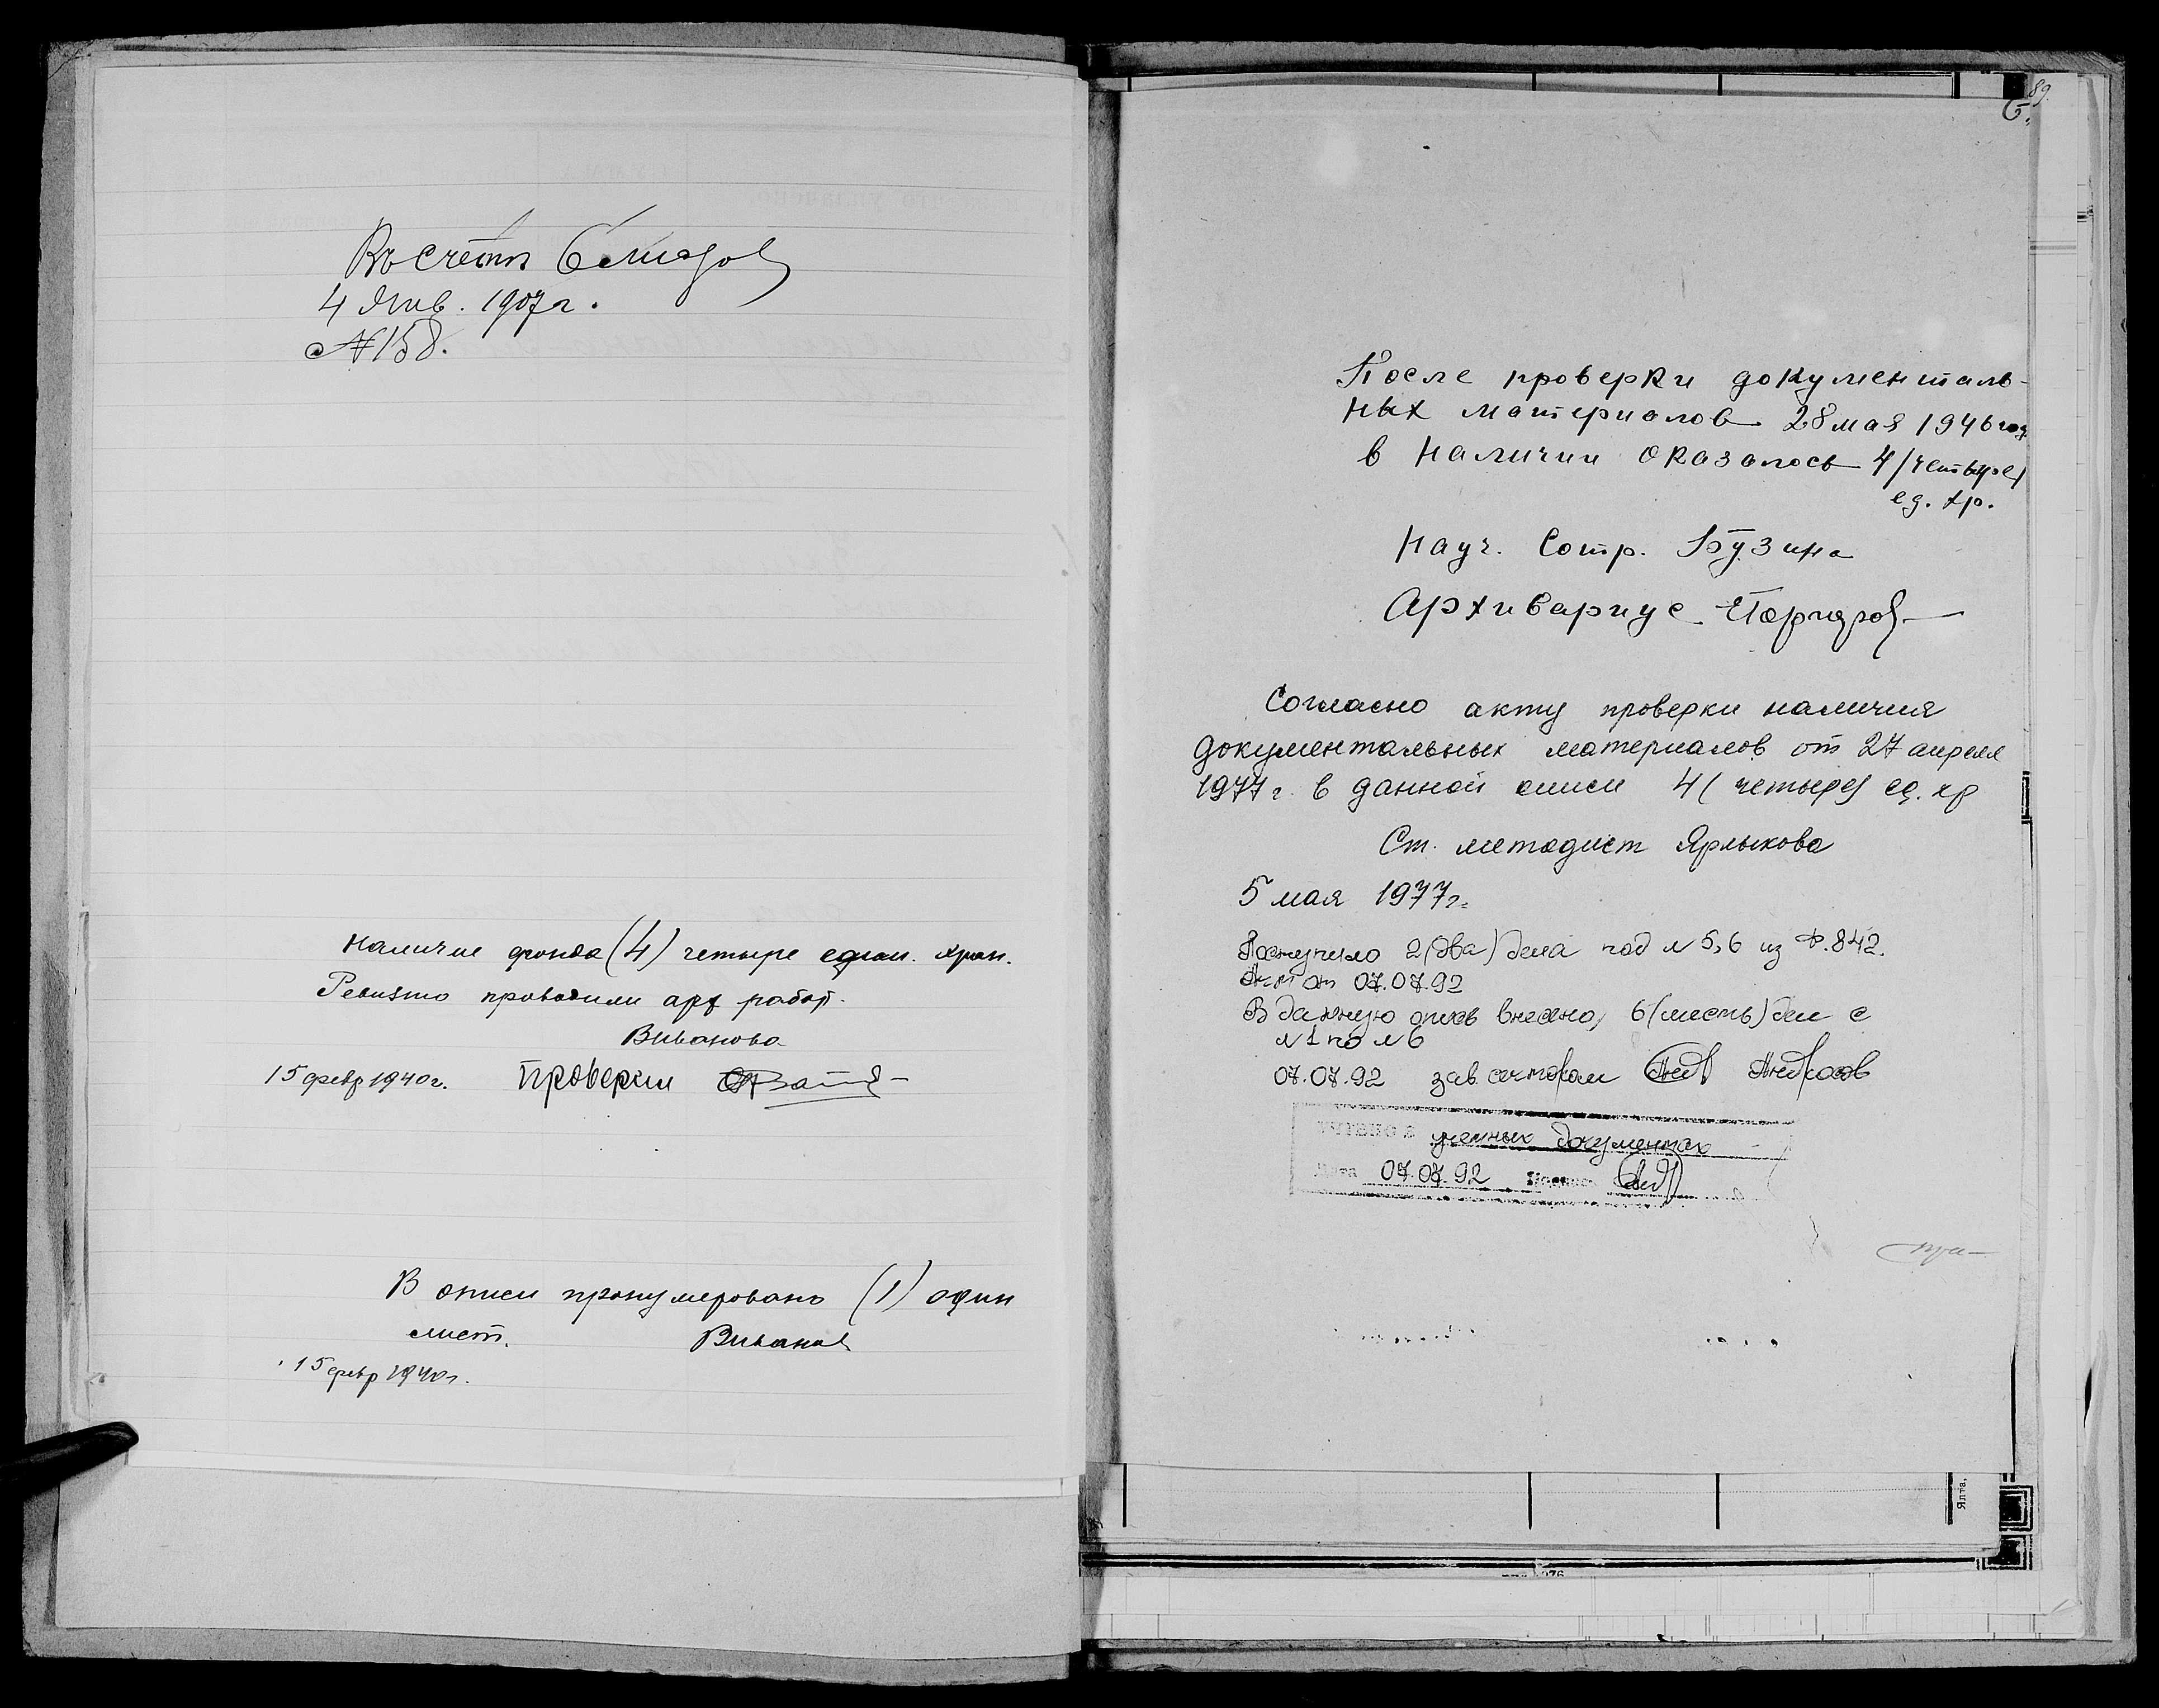 Въ счетъ
4 Янв. 1907 г.
№ 158.
Наличие фонда (4) четыре един. хран.
Ревизию проводили арх работ.
ВИванова
15 февр 1940 г. Проверил
В описи пронумеровано (1) один
лист. ВИванов
15 февр 1940 г.
89
6.
После проверки документаль-
ных материалов 28 мая 1946 год
в наличии оказалось 4 /четыре/
ед. хр.
Науч. Сотр. Бузина
Архивариус
Согласно акту проверки наличия
документальных материалов от 27 апреля
1977 г. в данной описи 4 (четыре) ед. хр
Ст. методист Ярлыкова
5 мая 1977 г.
Поступило 2 (два) дела под № 5, 6 из Ф. 842.
Акт от 07.07.92
В данную опись внесено, 6 (шесть) дел с
№ 1 по № 6
07.07.92 зав. сектором
УЧТЕНО В учетных документах
Дата 07.07.92 Подпись
Ялта,